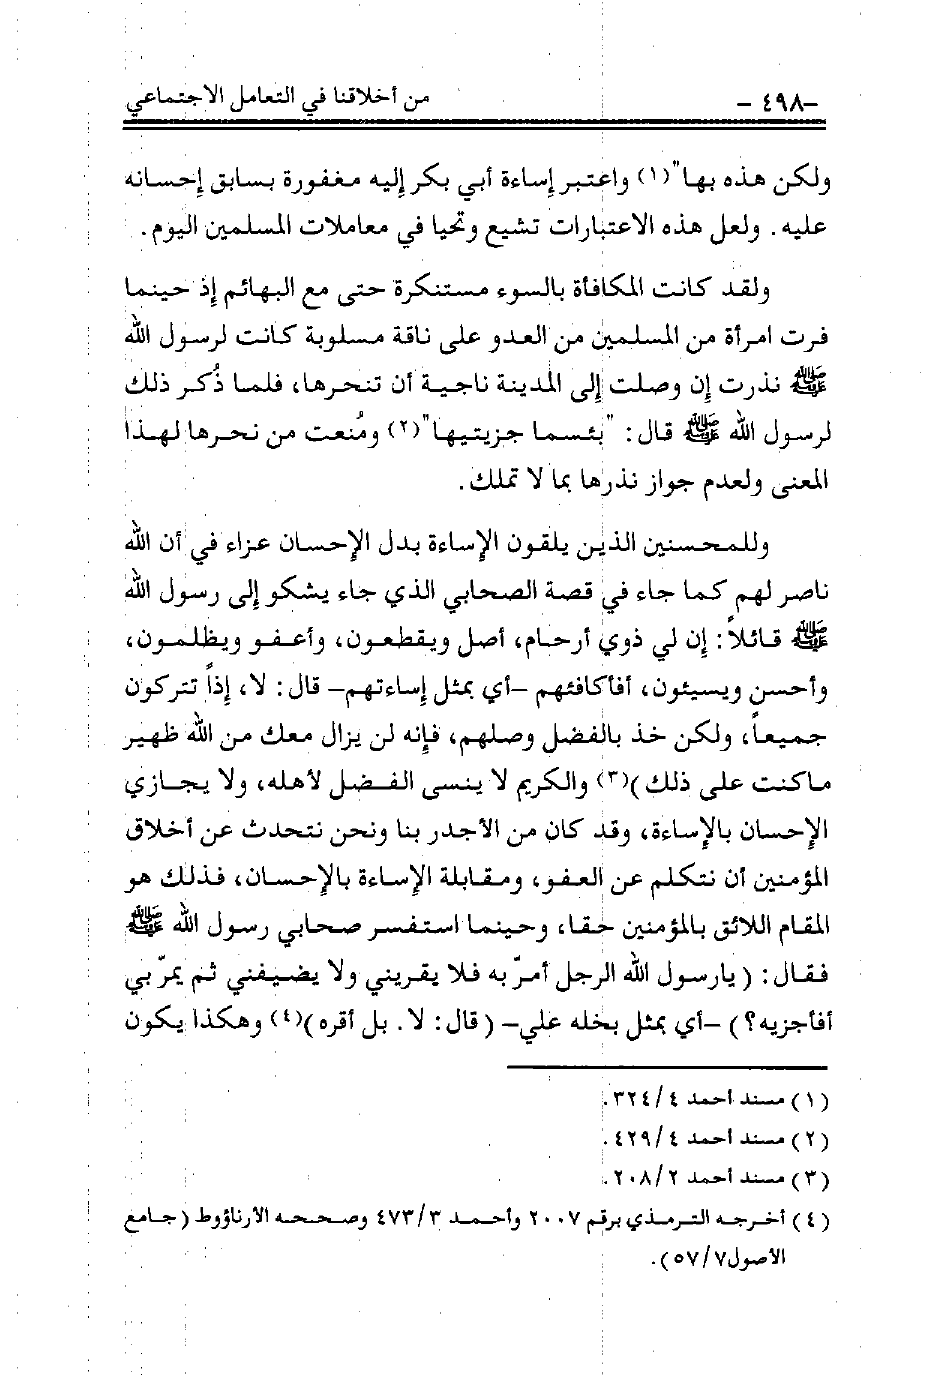 -٤٩٨- من أخلاقنا في التعامل الاجتماعي
ولكن هذه بها"(١) واعتبر إساءة أبي بكر إليه مغفورة بسابق إحسانه
عليه. ولعل هذه الاعتبارات تشيع وتحيا في معاملات المسلمين اليوم.
ولقد كانت المكافأة بالسوء مستنكرة حتى مع البهائم إذ حينما
فرت امرأة من المسلمين من العدو على ناقة مسلوبة كانت لرسول الله
ﷺ نذرت إن وصلت إلى المدينة ناجية أن تنحرها، فلما ذُكر ذلك
لرسول الله ﷺ قال: "بئسما جزيتيها"(٢) ومُنعت من نحرها لهذا
المعنى ولعدم جواز نذرها بما لا تملك.
وللمحسنين الذين يلقون الإساءة بدل الإحسان عزاء في أن الله
ناصر لهم كما جاء في قصة الصحابي الذي جاء يشكو إلى رسول الله
ﷺ قائلاً: إن لي ذوي أرحام، أصل ويقطعون، وأعفو ويظلمون،
وأحسن ويسيئون، أفأكافئهم -أي بمثل إساءتهم- قال: لا، إذاً تتركون
جميعاً، ولكن خذ بالفضل وصلهم، فإنه لن يزال معك من الله ظهير
ماكنت على ذلك)(٣) والكريم لا ينسى الفضل لأهله، ولا يجازي
الإحسان بالإساءة، وقد كان من الأجدر بنا ونحن نتحدث عن أخلاق
المؤمنين أن نتكلم عن العفو، ومقابلة الإساءة بالإحسان، فذلك هو
المقام اللائق بالمؤمنين حقا، وحينما استفسر صحابي رسول الله ﷺ
فقال: (يارسول الله الرجل أمرّ به فلا يقريني ولا يضيفني ثم يمرّ بي
أفأجزيه؟) -أي بمثل بخله علي- (قال: لا. بل أقره)(٤) وهكذا يكون
(١) مسند أحمد ٣٢٤/٤.
(٢) مسند أحمد ٤٢٩/٤.
(٣) مسند أحمد ٢٠٨/٢.
(٤) أخرجه الترمذي برقم ٢٠٠٧ وأحمد ٤٧٣/٣ وصححه الارناؤوط (جامع
الأصول٥٧/٧).